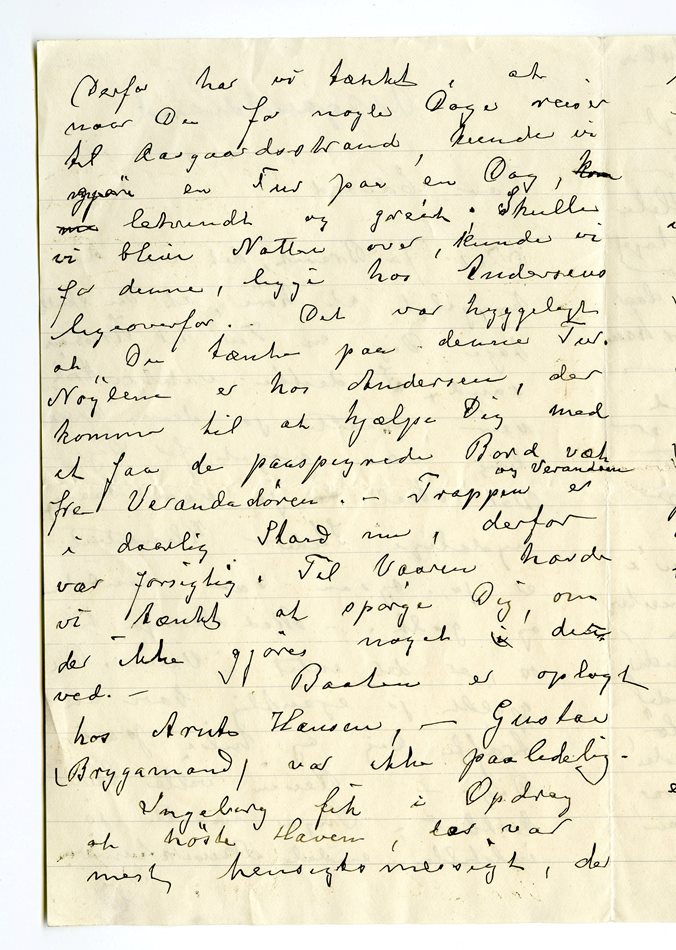 Derfor har vi tænkt, at
naar Du for nogle Dage reiser
til Aargaardsstrand, kunde vi
en Tur paa en Dag, kom
letvindt og greit. Skulle
vi blive Natten over, kunde vi
for denne, ligge hos Andersens
ligeoverfor. Det var hyggeligt
at Du tænke paa denne Tur.
Nøglene er hos Andersen, der
komme til at hjælpe Dig med
at faa de paaspigrede Bord væk
fra Verandadøren. – Trappen og Verandaen er
i daarlig Stand nu, derfor
vær forsigtig. Til Vaaren havde
vi tænkt at spørge Dig, om
der ikke gjøres noget
ved. – Baaten er oplagt
hos Arnts Hansen, – Gustav
(Bryggamand) var ikke paalidelig. –
Ingeborg fik i Opdrag
at høste Haven, var
mest hensigtsmæssigt, da